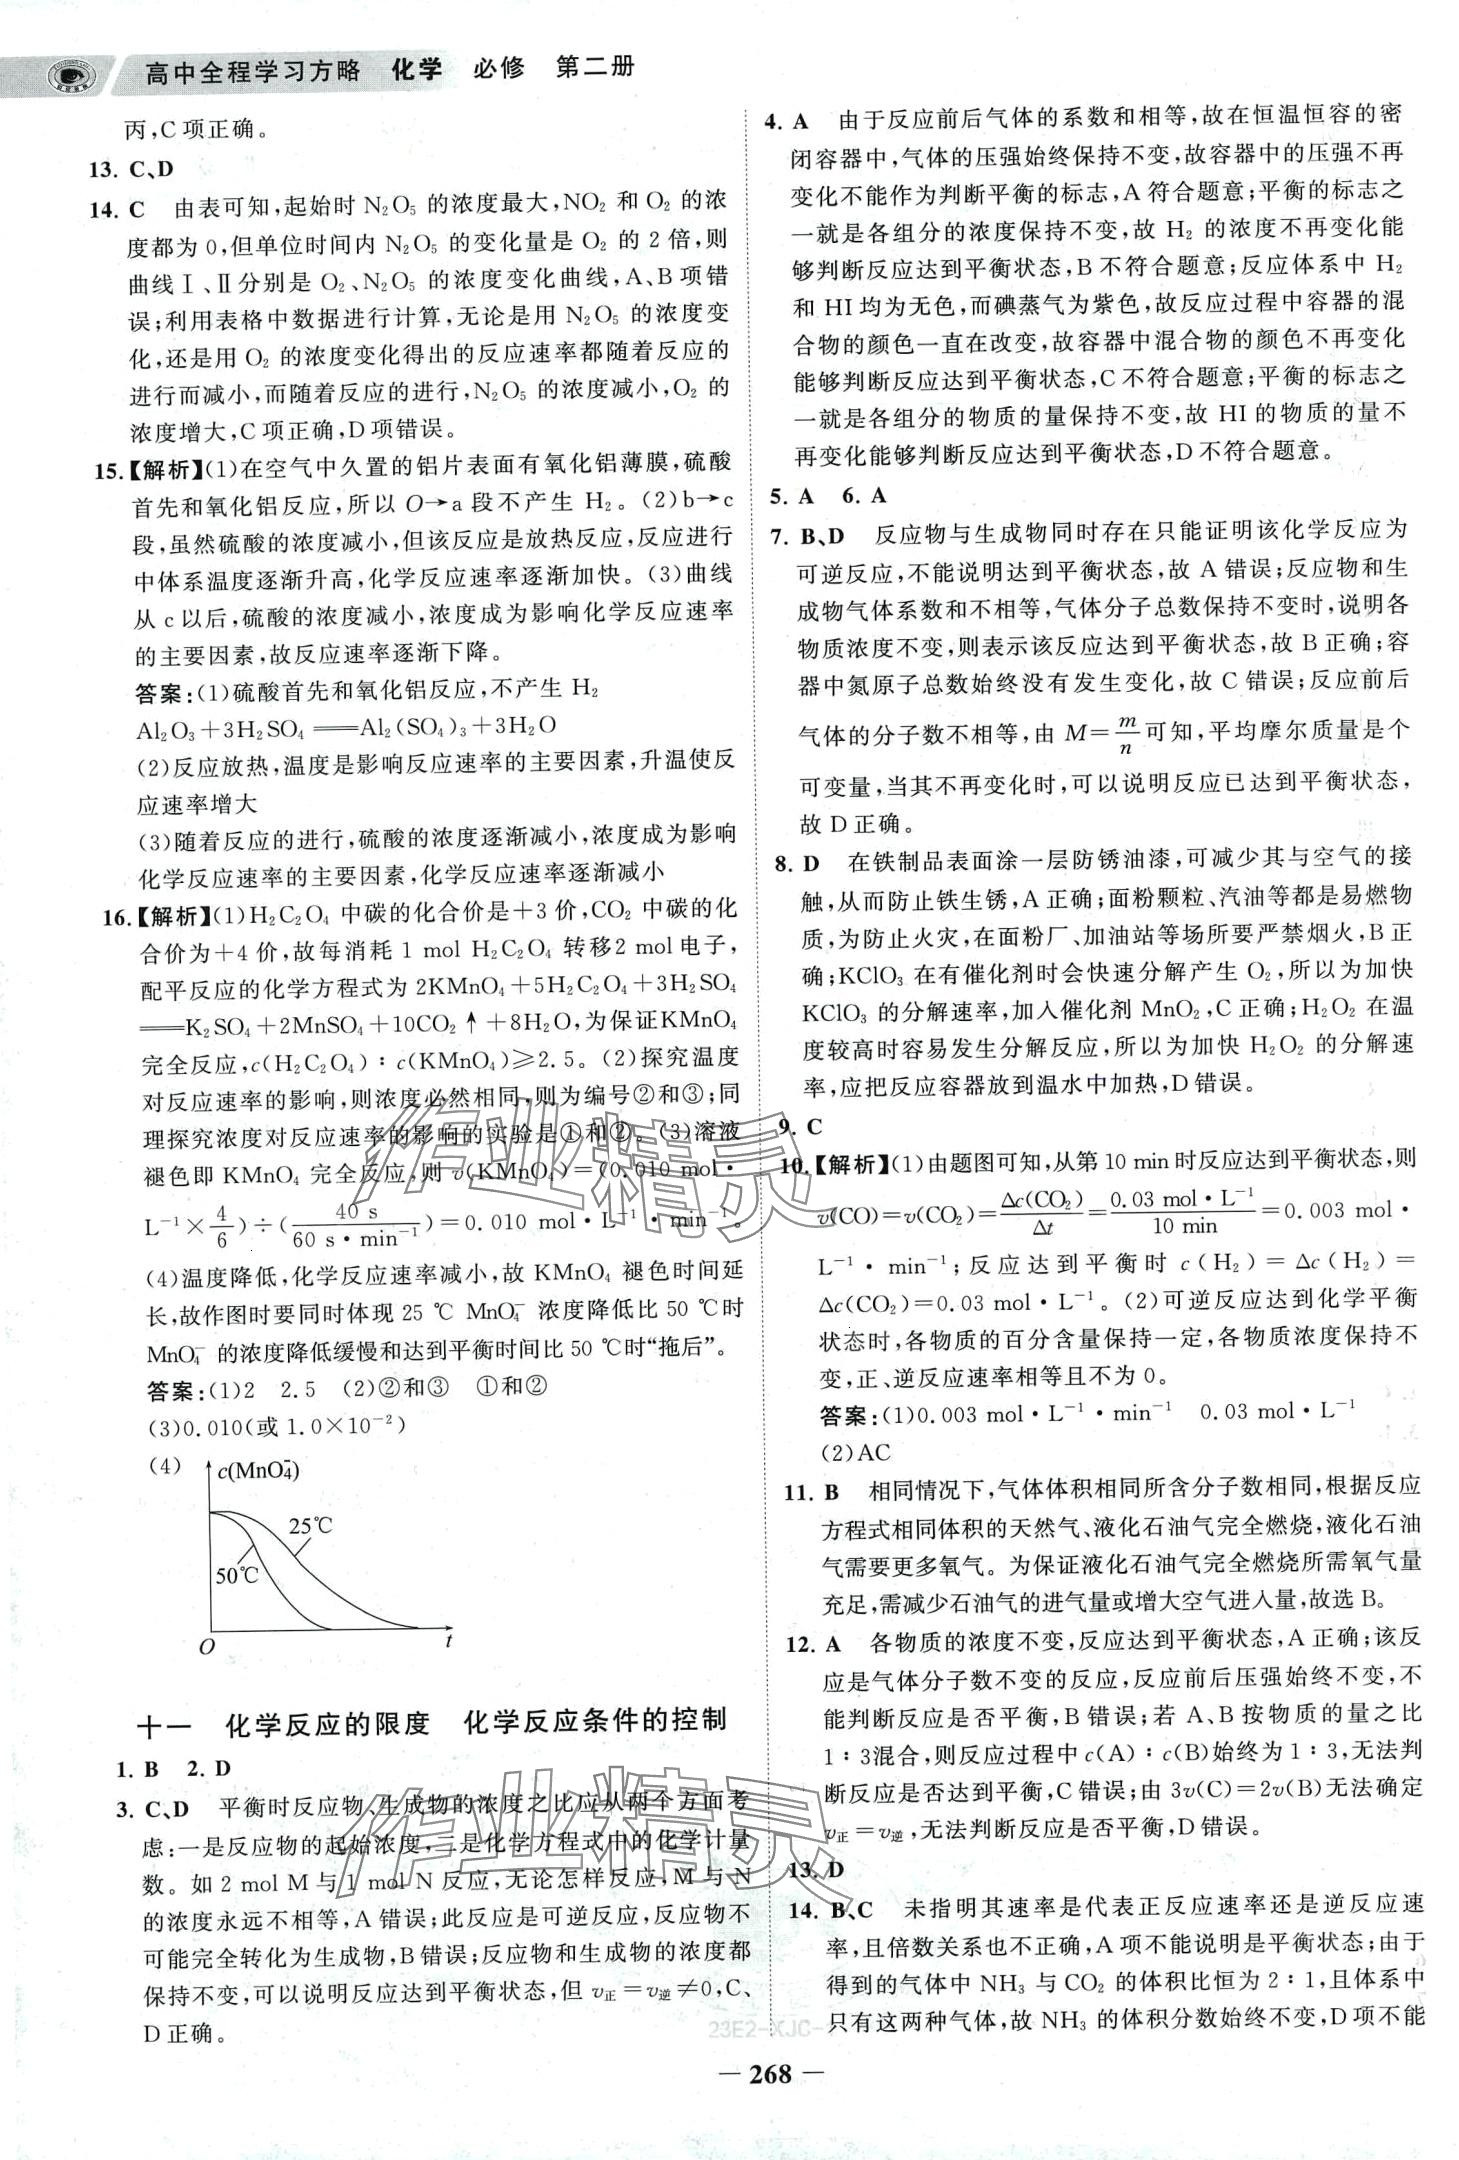 高中全程学习方略 化学 必修 第二册
丙,C项正确。
13. C、D
14. C 由表可知,起始时 N₂O₅ 的浓度最大,NO₂ 和 O₂ 的浓
度都为 0,但单位时间内 N₂O₅ 的变化量是 O₂ 的 2 倍,则
曲线Ⅰ、Ⅱ分别是 O₂、N₂O₅ 的浓度变化曲线,A、B 项错
误;利用表格中数据进行计算,无论是用 N₂O₅ 的浓度变
化,还是用 O₂ 的浓度变化得出的反应速率都随着反应的
进行而减小,而随着反应的进行,N₂O₅ 的浓度减小,O₂ 的
浓度增大,C项正确,D项错误。
15.【解析】(1)在空气中久置的铝片表面有氧化铝薄膜,硫酸
首先和氧化铝反应,所以 O→a 段不产生 H₂。(2)b→c
段,虽然硫酸的浓度减小,但该反应是放热反应,反应进行
中体系温度逐渐升高,化学反应速率逐渐加快。(3)曲线
从 c 以后,硫酸的浓度减小,浓度成为影响化学反应速率
的主要因素,故反应速率逐渐下降。
答案:(1)硫酸首先和氧化铝反应,不产生 H₂
Al₂O₃+3H₂SO₄══Al₂(SO₄)₃+3H₂O
(2)反应放热,温度是影响反应速率的主要因素,升温使反
应速率增大
(3)随着反应的进行,硫酸的浓度逐渐减小,浓度成为影响
化学反应速率的主要因素,化学反应速率减小
16.【解析】(1)H₂C₂O₄ 中碳的化合价是+3 价,CO₂ 中碳的化
合价为+4 价,故每消耗 1 mol H₂C₂O₄ 转移2 mol电子,
配平反应的化学方程式为 2KMnO₄+5H₂C₂O₄+3H₂SO₄
══K₂SO₄+2MnSO₄+10CO₂↑+8H₂O,为保证KMnO₄
完全反应,c(H₂C₂O₄)∶c(KMnO₄)≥2.5。(2)探究温度
对反应速率的影响,则浓度必然相同,则为编号②和③;同
理探究浓度对反应速率的影响的实验是①和②。(3)溶液
褪色即 KMnO₄ 完全反应,则 v(KMnO₄)=(0.010 mol·
L⁻¹×4/6)÷(40 s/60 s·min⁻¹)=0.010 mol·L⁻¹·min⁻¹。
(4)温度降低,化学反应速率减小,故 KMnO₄ 褪色时间延
长,故作图时要同时体现 25 ℃ MnO₄⁻ 浓度降低比 50 ℃时
MnO₄⁻ 的浓度降低缓慢和达到平衡时间比 50 ℃时“拖后”。
答案:(1)2 2.5 (2)②和③ ①和②
(3)0.010(或 1.0×10⁻²)
(4) c(MnO₄⁻)
25℃
50℃
O t
十一 化学反应的限度 化学反应条件的控制
1. B 2. D
3. C、D 平衡时反应物、生成物的浓度之比应从两个方面考
虑:一是反应物的起始浓度,二是化学方程式中的化学计量
数。如 2 mol M 与 1 mol N 反应,无论怎样反应,M 与 N
的浓度永远不相等,A 错误;此反应是可逆反应,反应物不
可能完全转化为生成物,B 错误;反应物和生成物的浓度都
保持不变,可以说明反应达到平衡状态,但 v正=v逆≠0,C、
D 正确。
4. A 由于反应前后气体的系数和相等,故在恒温恒容的密
闭容器中,气体的压强始终保持不变,故容器中的压强不再
变化不能作为判断平衡的标志,A 符合题意;平衡的标志之
一就是各组分的浓度保持不变,故 H₂ 的浓度不再变化能
够判断反应达到平衡状态,B 不符合题意;反应体系中 H₂
和 HI 均为无色,而碘蒸气为紫色,故反应过程中容器的混
合物的颜色一直在改变,故容器中混合物的颜色不再变化
能够判断反应达到平衡状态,C 不符合题意;平衡的标志之
一就是各组分的物质的量保持不变,故 HI 的物质的量不
再变化能够判断反应达到平衡状态,D 不符合题意。
5. A 6. A
7. B、D 反应物与生成物同时存在只能证明该化学反应为
可逆反应,不能说明达到平衡状态,故 A 错误;反应物和生
成物气体系数和不相等,气体分子总数保持不变时,说明各
物质浓度不变,则表示该反应达到平衡状态,故 B 正确;容
器中氮原子总数始终没有发生变化,故 C 错误;反应前后
气体的分子数不相等,由 M=m/n可知,平均摩尔质量是个
可变量,当其不再变化时,可以说明反应已达到平衡状态,
故 D 正确。
8. D 在铁制品表面涂一层防锈油漆,可减少其与空气的接
触,从而防止铁生锈,A 正确;面粉颗粒、汽油等都是易燃物
质,为防止火灾,在面粉厂、加油站等场所要严禁烟火,B 正
确;KClO₃ 在有催化剂时会快速分解产生 O₂,所以为加快
KClO₃ 的分解速率,加入催化剂 MnO₂,C 正确;H₂O₂ 在温
度较高时容易发生分解反应,所以为加快 H₂O₂ 的分解速
率,应把反应容器放到温水中加热,D 错误。
9. C
10.【解析】(1)由题图可知,从第 10 min 时反应达到平衡状态,则
v(CO)=v(CO₂)=Δc(CO₂)/Δt=0.03 mol·L⁻¹/10 min=0.003 mol·
L⁻¹·min⁻¹;反应达到平衡时 c(H₂)=Δc(H₂)=
Δc(CO₂)=0.03 mol·L⁻¹。(2)可逆反应达到化学平衡
状态时,各物质的百分含量保持一定,各物质浓度保持不
变,正、逆反应速率相等且不为 0。
答案:(1)0.003 mol·L⁻¹·min⁻¹ 0.03 mol·L⁻¹
(2)AC
11. B 相同情况下,气体体积相同所含分子数相同,根据反应
方程式相同体积的天然气、液化石油气完全燃烧,液化石油
气需要更多氧气。为保证液化石油气完全燃烧所需氧气量
充足,需减少石油气的进气量或增大空气进入量,故选 B。
12. A 各物质的浓度不变,反应达到平衡状态,A 正确;该反
应是气体分子数不变的反应,反应前后压强始终不变,不
能判断反应是否平衡,B 错误;若 A、B 按物质的量之比
1∶3混合,则反应过程中 c(A)∶c(B)始终为 1∶3,无法判
断反应是否达到平衡,C 错误;由 3v(C)=2v(B)无法确定
v正=v逆,无法判断反应是否平衡,D 错误。
13. D
14. B、C 未指明其速率是代表正反应速率还是逆反应速
率,且倍数关系也不正确,A 项不能说明是平衡状态;由于
得到的气体中 NH₃ 与 CO₂ 的体积比恒为 2∶1,且体系中
只有这两种气体,故 NH₃ 的体积分数始终不变,D 项不能
23E2-XJC-
— 268 —
作业精灵
作业精灵